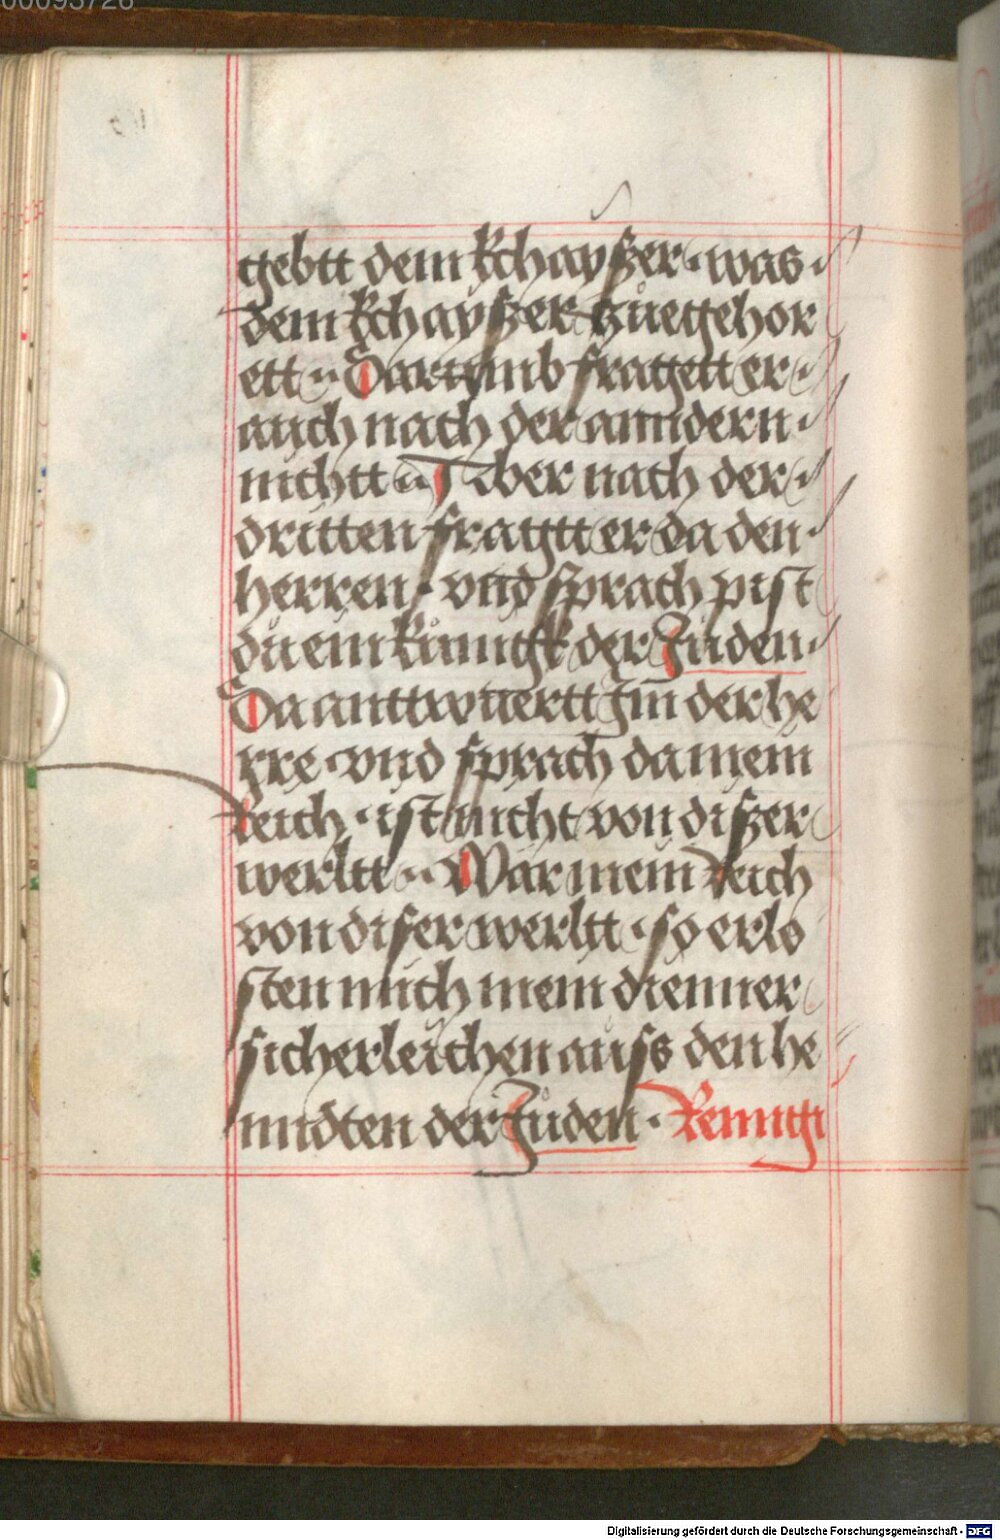 00093726
gebtt dem kchayſzer · was
dem kchayſzer zůegehor
ett · Darvmb fragett er
auch nach der anndern ·
nichtt · Aber nach der
dritten fragtt er da den ·
herren · vnd ſprach piſt
du ein kůnigk der Juden ·
Da anttwuertt Jm der he
rre · vnd ſprach da mein
Reich · iſt nicht von diſzer
werltt · Wär mein Reich
von diſer werltt · ſo erlo
ſten mich mein dienner
ſicherleichen auſs den he
nndten der Juden · Remigi
Digitalisierung gefördert durch die Deutsche Forschungsgemeinschaft - DFG